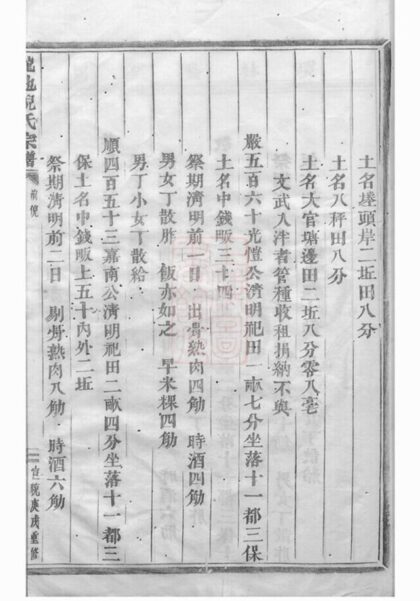 土名塍頭岸二坵田八分
土名八秤田八分
土名大官塘邊田二坵八分零八毫
文武入泮者管種收租捐納不與
嚴五百六十光愷公淸明祀田一畝七分坐落十一都三保
土名中錢畈三十四
祭期淸明前一日 出骨熟肉四觔 時酒四觔
男女丁散胙 飯亦如之 早米粿四觔
男丁小女丁散給
順四百五十三嘉南公淸明祀田二畝四分坐落十一都三
保土名中錢畈上五十內外二坵
祭期淸明前二日 剔骨熟肉八觔 時酒六觔
倪氏宗譜
宣統庚戌重修